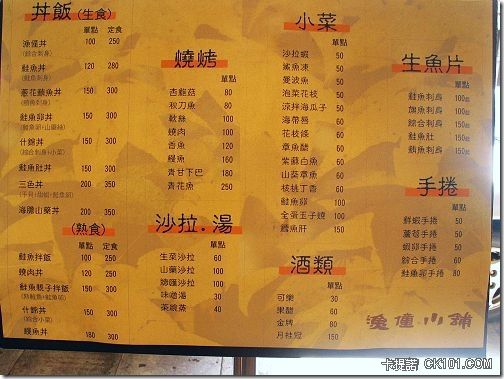 丼飯(生食)
單點 定食
漁僮丼 100 250
(綜合刺身)
鮭魚丼 120 280
(鮭魚刺身)
蔥花鮪魚丼 150 300
(鮪魚刺身)
鮭魚卵丼 150 300
什錦丼 150 300
(綜合刺身+小菜)
鮭魚肚丼 150 300
三色丼 200 350
海膽山藥丼 200 350
(熟食)
單點 定食
鮭魚拌飯 150 300
燒肉丼 120 300
鮭魚親子拌飯 150 300
什錦丼 150 300
(綜合小菜)
鰻魚丼 180 300
燒烤
單點
杏鮑菇 80
秋刀魚 80
軟絲 100
燒肉 100
香魚 100
鰻魚 150
青甘下巴 180
青花魚 250
沙拉.湯
單點
生菜沙拉 60
山藥沙拉 100
總匯沙拉 100
味噌湯 30
茶碗蒸 40
小菜
單點
沙拉蝦 50
鯊魚凍 50
曼波魚 50
泡菜花枝 50
涼拌海瓜子 50
海帶唇 60
花枝條 60
章魚醋 60
紫蘇白魚 60
山葵章魚 60
核桃丁香 60
鮭魚卵 60
全蛋王子燒 100
鱈魚肝 100
酒類
單點
可樂 30
果醋 60
金牌 80
月桂冠 150
生魚片
單點
鮭魚刺身 100起
旗魚刺身 100起
綜合刺身 150起
鮭魚肚 150起
鮪魚刺身 150起
手捲
單點
鮮蝦手捲 50
蘆筍手捲 50
蝦卵手捲 50
綜合手捲 60
鮭魚卵手捲 80
漁僮小舖
卡提諾 CK101.COM